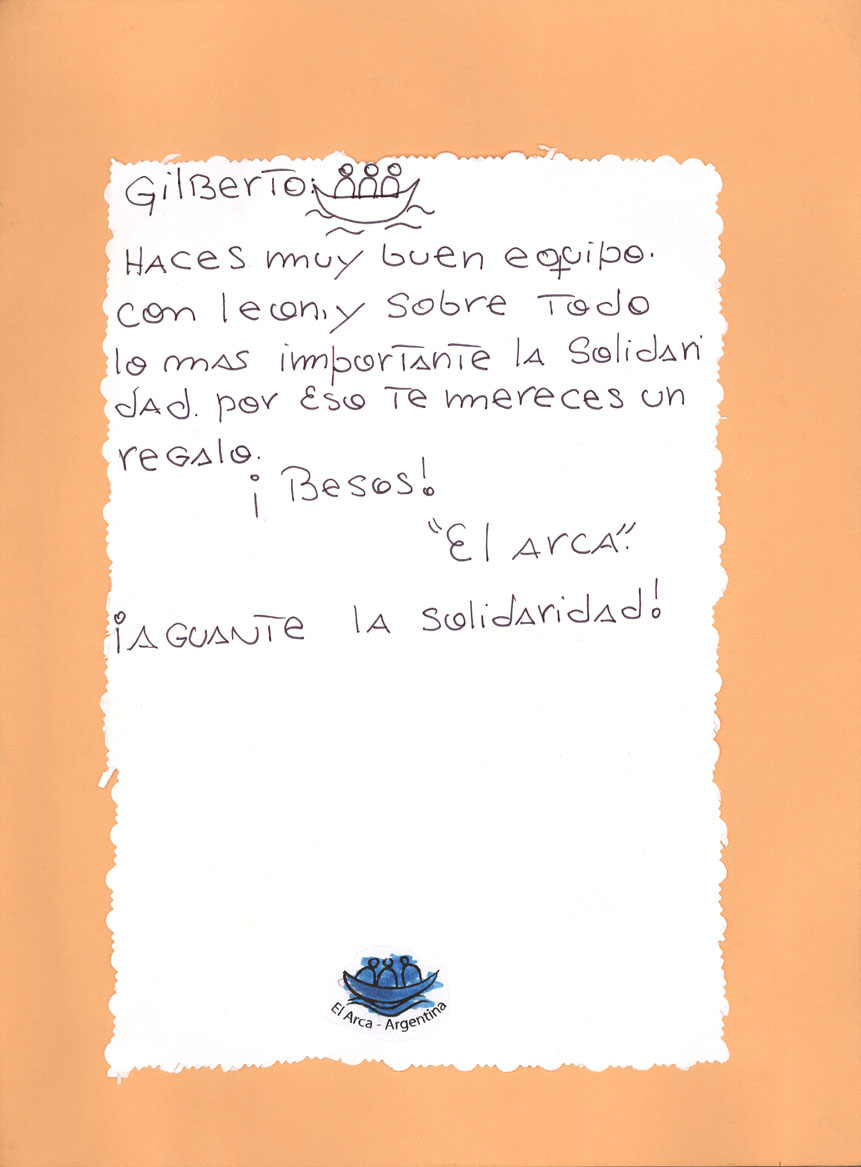 GilBerTo:
HAces muy buen equipo.
con leon, y sobre Todo
lo mAs imporTAnTe lA Solidari
dAd. por Eso Te mereces un
reGAlo.
¡Besos!
"El ArcA".
¡AGUANTe lA solidAridAd!
El Arca - Argentina